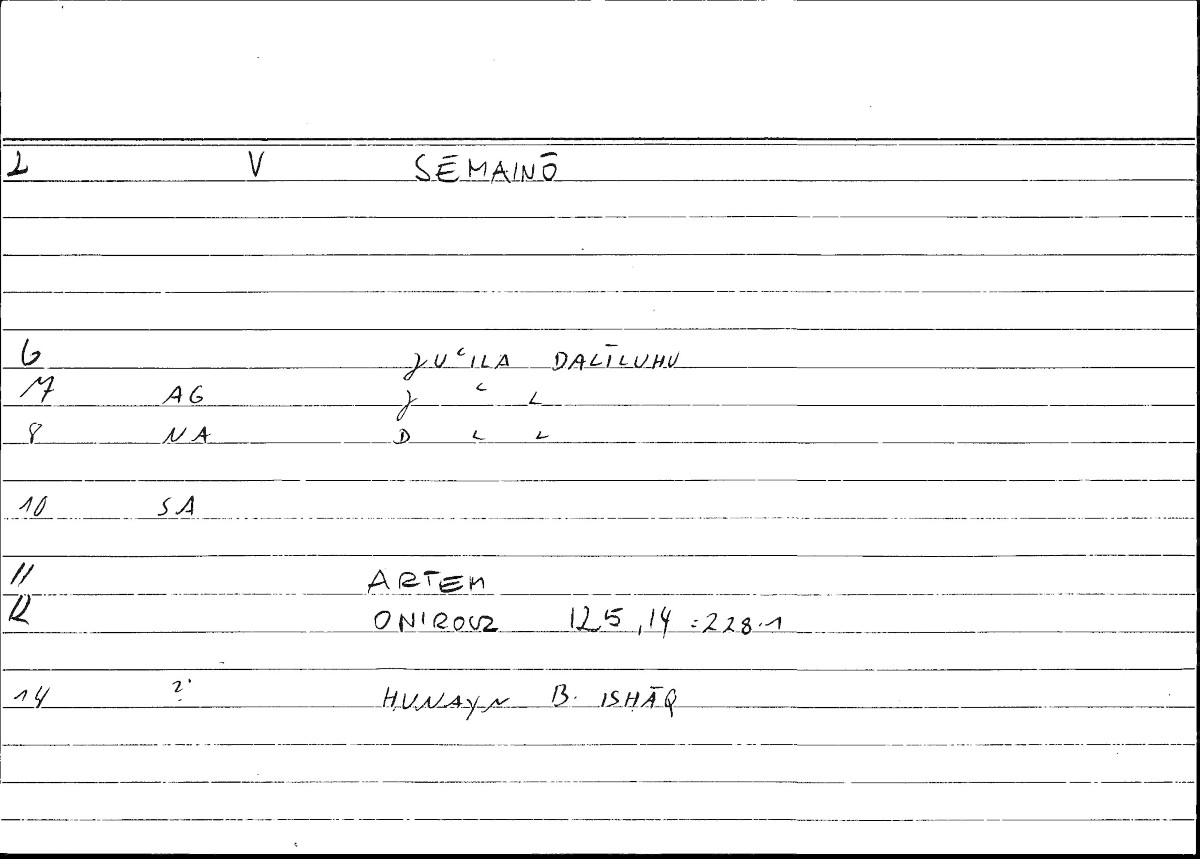 2 V SĒMAINŌ
6 ǧUʿILA DALĪLUHU
7 AG ǧ ʿ L
8 NA D L L
10 SA
11 ARTEM
12 ONIROCR 125,14 :228.1
14 2. ḤUNAYN B. ISḤĀQ